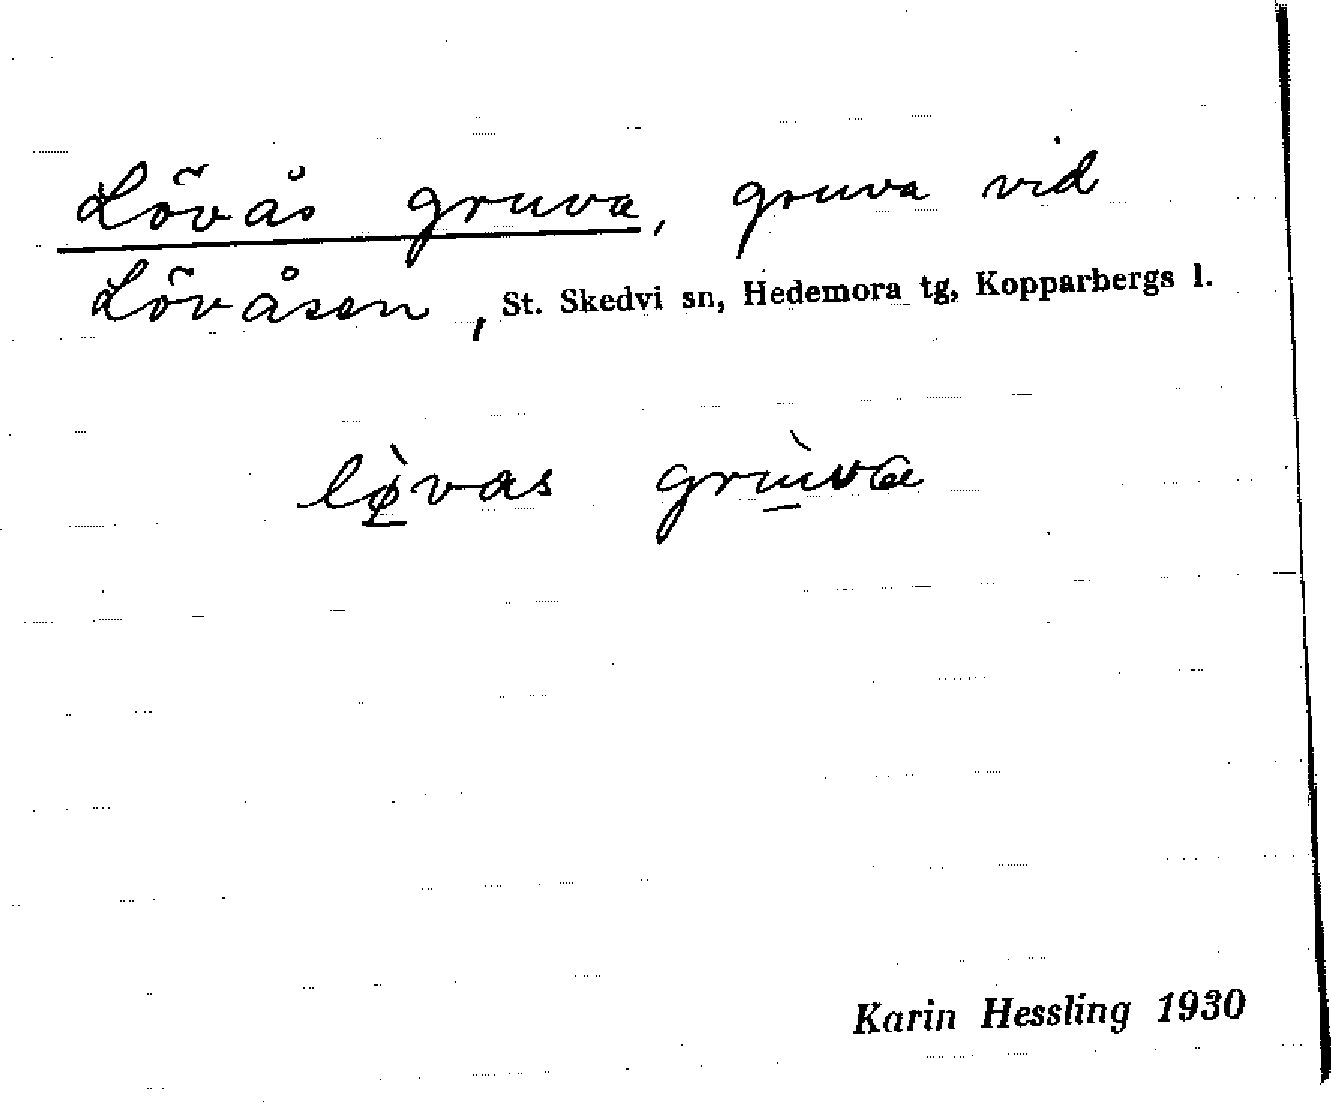 Lövås gruva, gruva vid
Lövåsen, St. Skedvi sn, Hedemora tg, Kopparbergs l.
lø̀vas grùva
Karin Hessling 1930